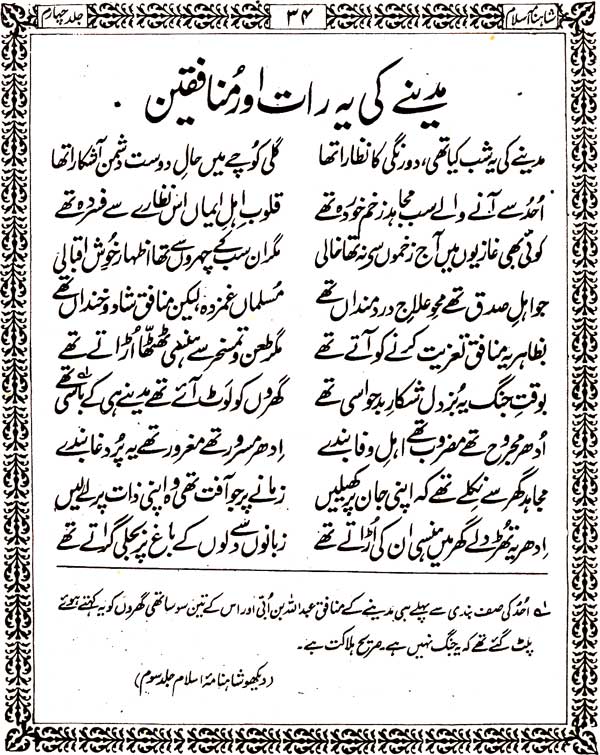 شاہنامۂ اسلام ۳۴ جلد چہارم
مدینے کی یہ رات اور مُنافقین
مدینے کی یہ شب کیا تھی، دورنگی کا نظارا تھا گلی کُوچے میں حالِ دوست دشمن آشکارا تھا
اُحُد سے آنے والے سب مجاہد زخم خوردہ تھے قلوبِ اہلِ ایماں اس نظارے سے فسردہ تھے
کوئی بھی غازیوں میں آج زخموں سے نہ تھا خالی مگر ان سب کے چہروں سے تھا اظہارِ خُوش اقبالی
جو اہلِ صدق تھے محوِ علاجِ دردمنداں تھے مُسلماں غمزدہ، لیکن منافق شاد و خنداں تھے
بظاہر یہ منافق تعزیت کرنے کو آتے تھے مگر طعن و تمسخر سے ہنسی ٹھٹھا اُڑاتے تھے
بوقتِ جنگ یہ بُزدل شکارِ بدحواسی تھے گھروں کو لَوٹ آئے تھے مدینے ہی کے باسی تھے ؎۱
اُدھر مجروح تھے مضروب تھے اہلِ وفا بندے اِدھر مسرور تھے مغرور تھے یہ پُر دغا بندے
مجاہد گھر سے نکلے تھے کہ اپنی جان پر کھیلیں زمانے پر جو آفت تھی وہ اپنی ذات پر لے لیں
اِدھر یہ تھُڑدلے گھر میں ہنسی ان کی اُڑاتے تھے زبانوں سے دلوں کے باغ پر بجلی گراتے تھے
؎۱ اُحُد کی صف بندی سے پہلے ہی مدینے کے منافق عبداللہ بن اُبَیّ اور اس کے تین سو ساتھی گھروں کو یہ کہتے ہوئے
پلٹ گئے تھے کہ یہ جنگ نہیں ہے۔ صریح ہلاکت ہے۔
(دیکھو شاہنامۂ اسلام جلد سوم)